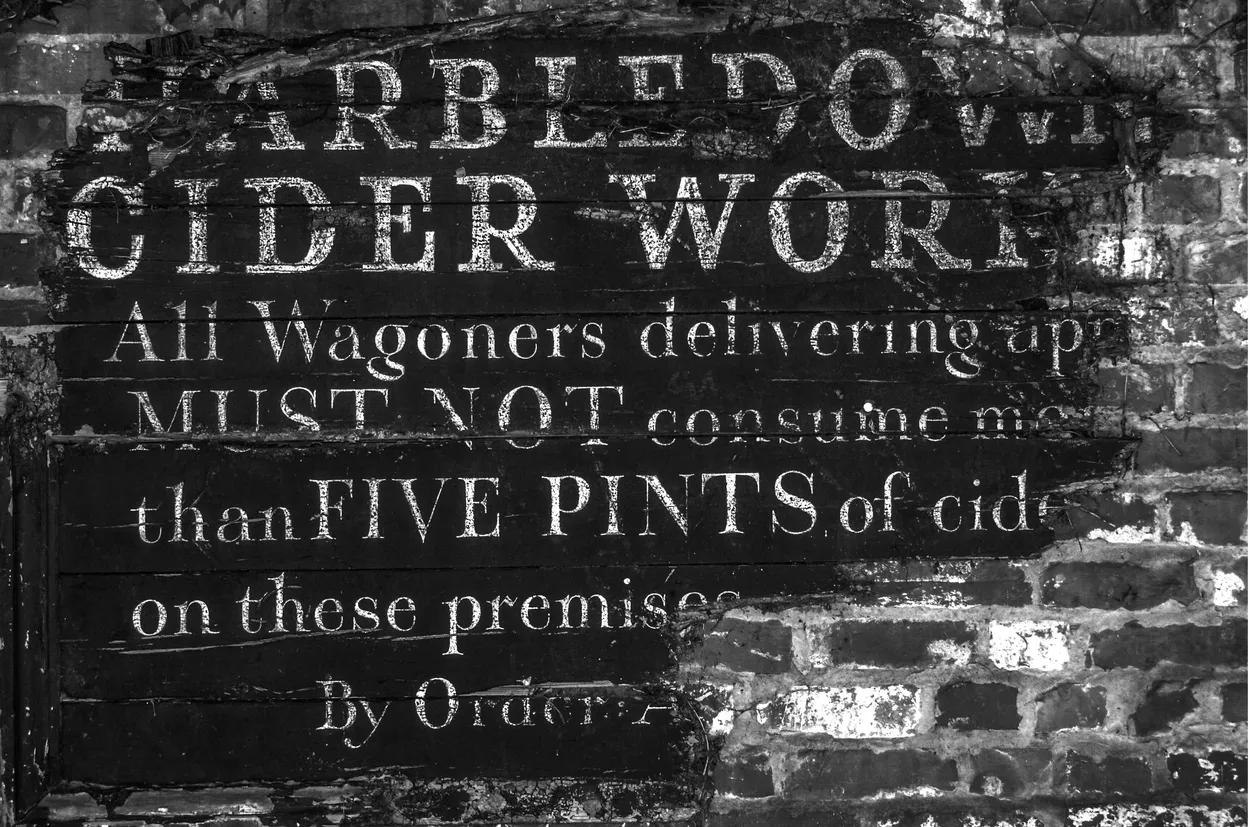 HARBLEDOWN
CIDER WORK
All Wagoners delivering app
MUST NOT consume mo
than FIVE PINTS of cide
on these premises
By Order: